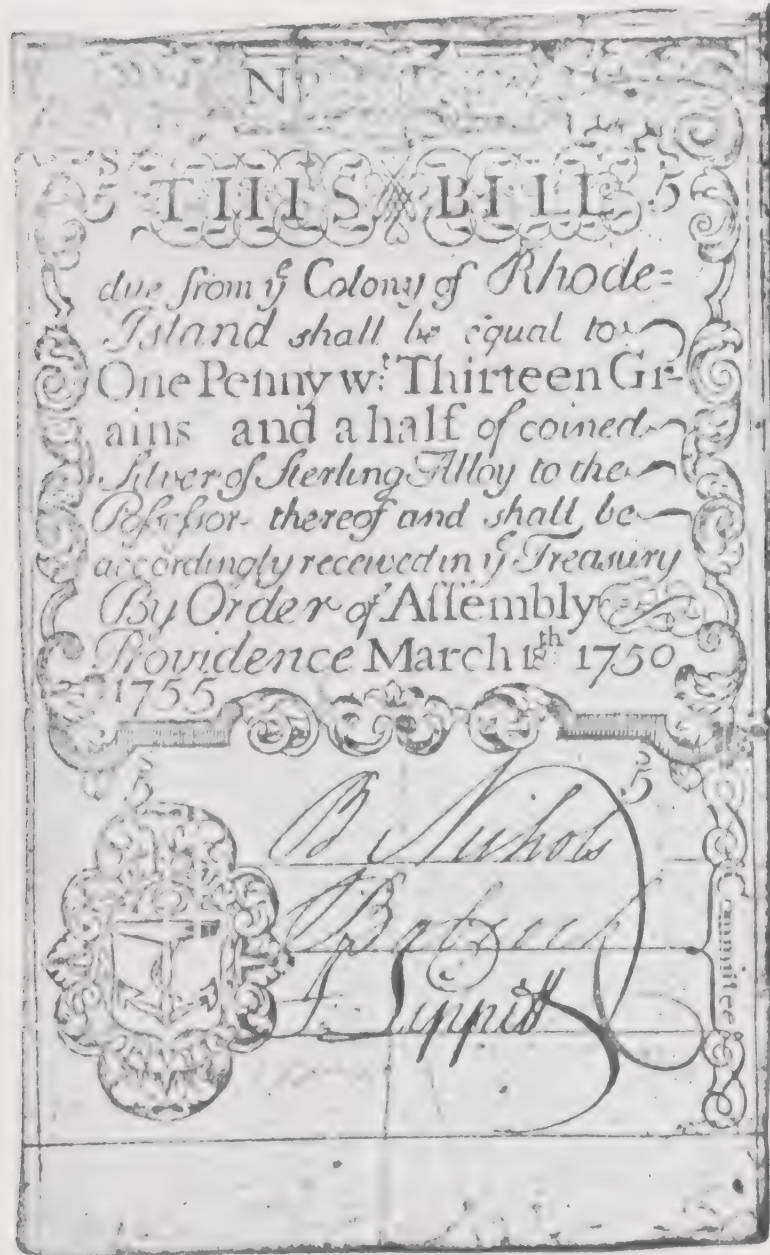 N
5 THIS BILL 5
due from yᵉ Colony of Rhode=
Island shall be equal to
One Penny wᵗ. Thirteen Gr-
ains and a half of coined
Silver of Sterling Alloy to the
Poſseſsor thereof and shall be
accordingly received in yᵉ Treasury
By Order of Aſſembly
Providence March 18ᵗʰ 1750
1755
5 5
B Nichols
J Lippitt
Committee